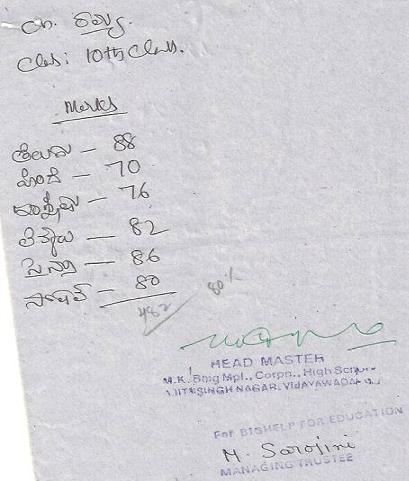 Ch. రమ్య.
Class: 10th Class.
Marks
తెలుగు — 88
హిందీ — 70
ఇంగ్లీషు — 76
లెక్కలు — 82
సైన్సు — 86
సోషల్ — 80
482
80%
HEAD MASTER
M.K. Baig Mpl., Corpn., High School
AJITSINGH NAGAR, VIJAYAWADA
For BIGHELP FOR EDUCATION
M. Sarojini
MANAGING TRUSTEE